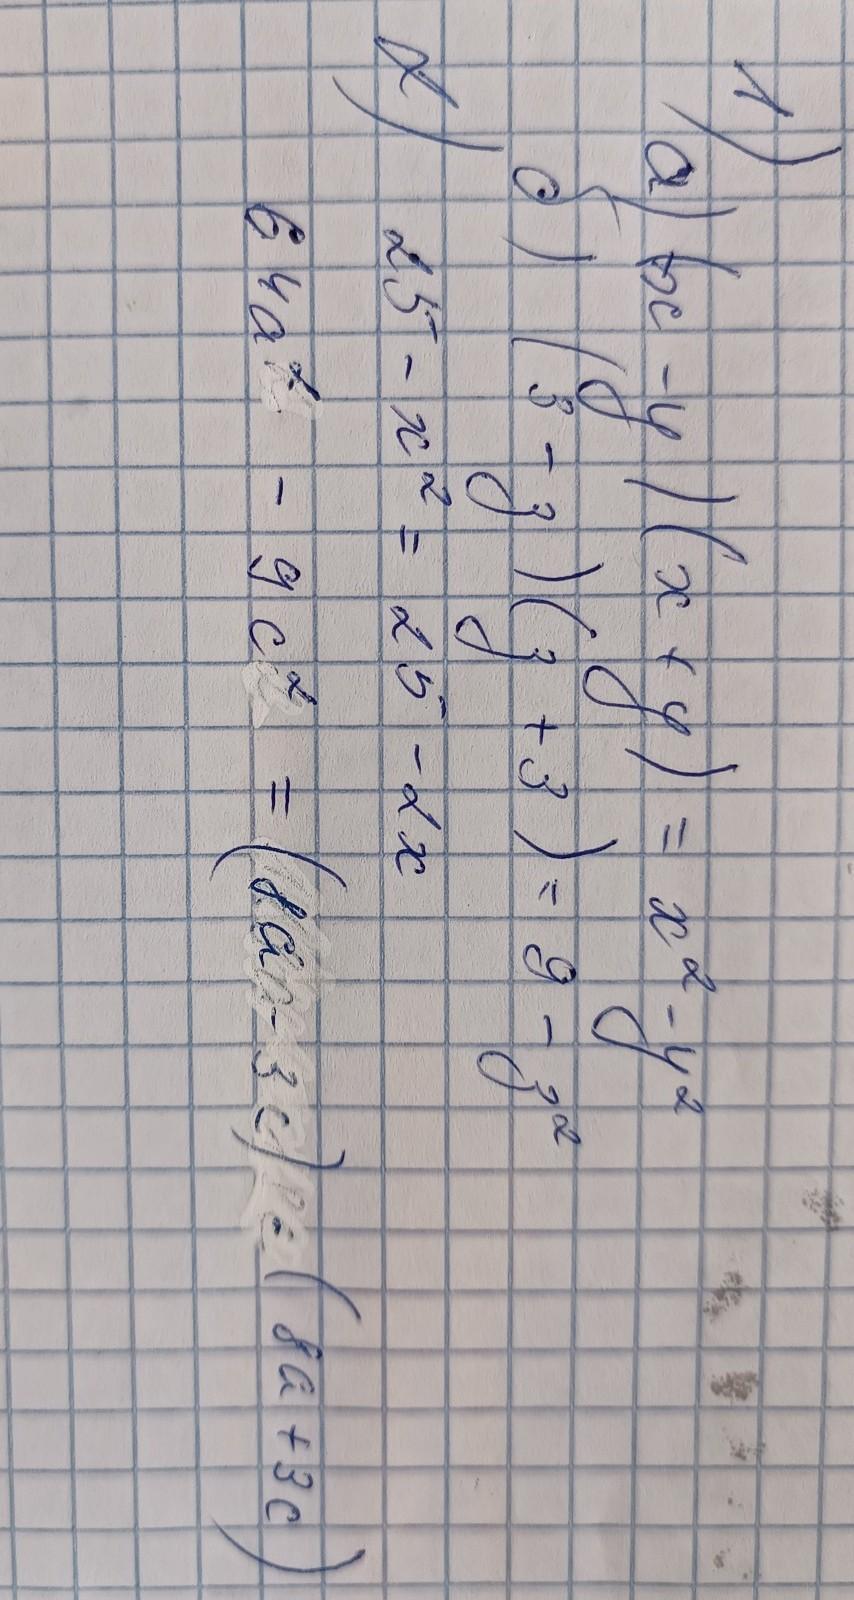 1)
а) (x - y)(x + y) = x² - y²
б) (3 - y)(y + 3) = 9 - y²
2) 25 - x² = 25 - 2x
64a² - 9c² = (8a - 3c) (8a + 3c)